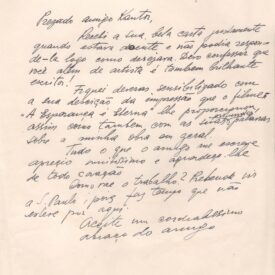 Prezado amigo Santos,
Recebi a sua bela carta justamente
quando estava doente e não podia respon-
de-la logo como desejava. Devo confessar que
você alem de artista é tambem brilhante
escritor!
Fiquei deveras sensibilizado com
a sua descrição da impressão que o filme
"A Esperança é Eterna" lhe proporcionou
assim como tambem com as palavras
sobre a minha obra em geral.
Tudo o que o amigo me escreve
aprecio muitissimo e agradeço-lhe
de todo coração
Como vae o trabalho? Pretende vir
a S. Paulo? pois faz tempo que não
esteve por aqui.
Aceite um cordialissimo
abraço do amigo